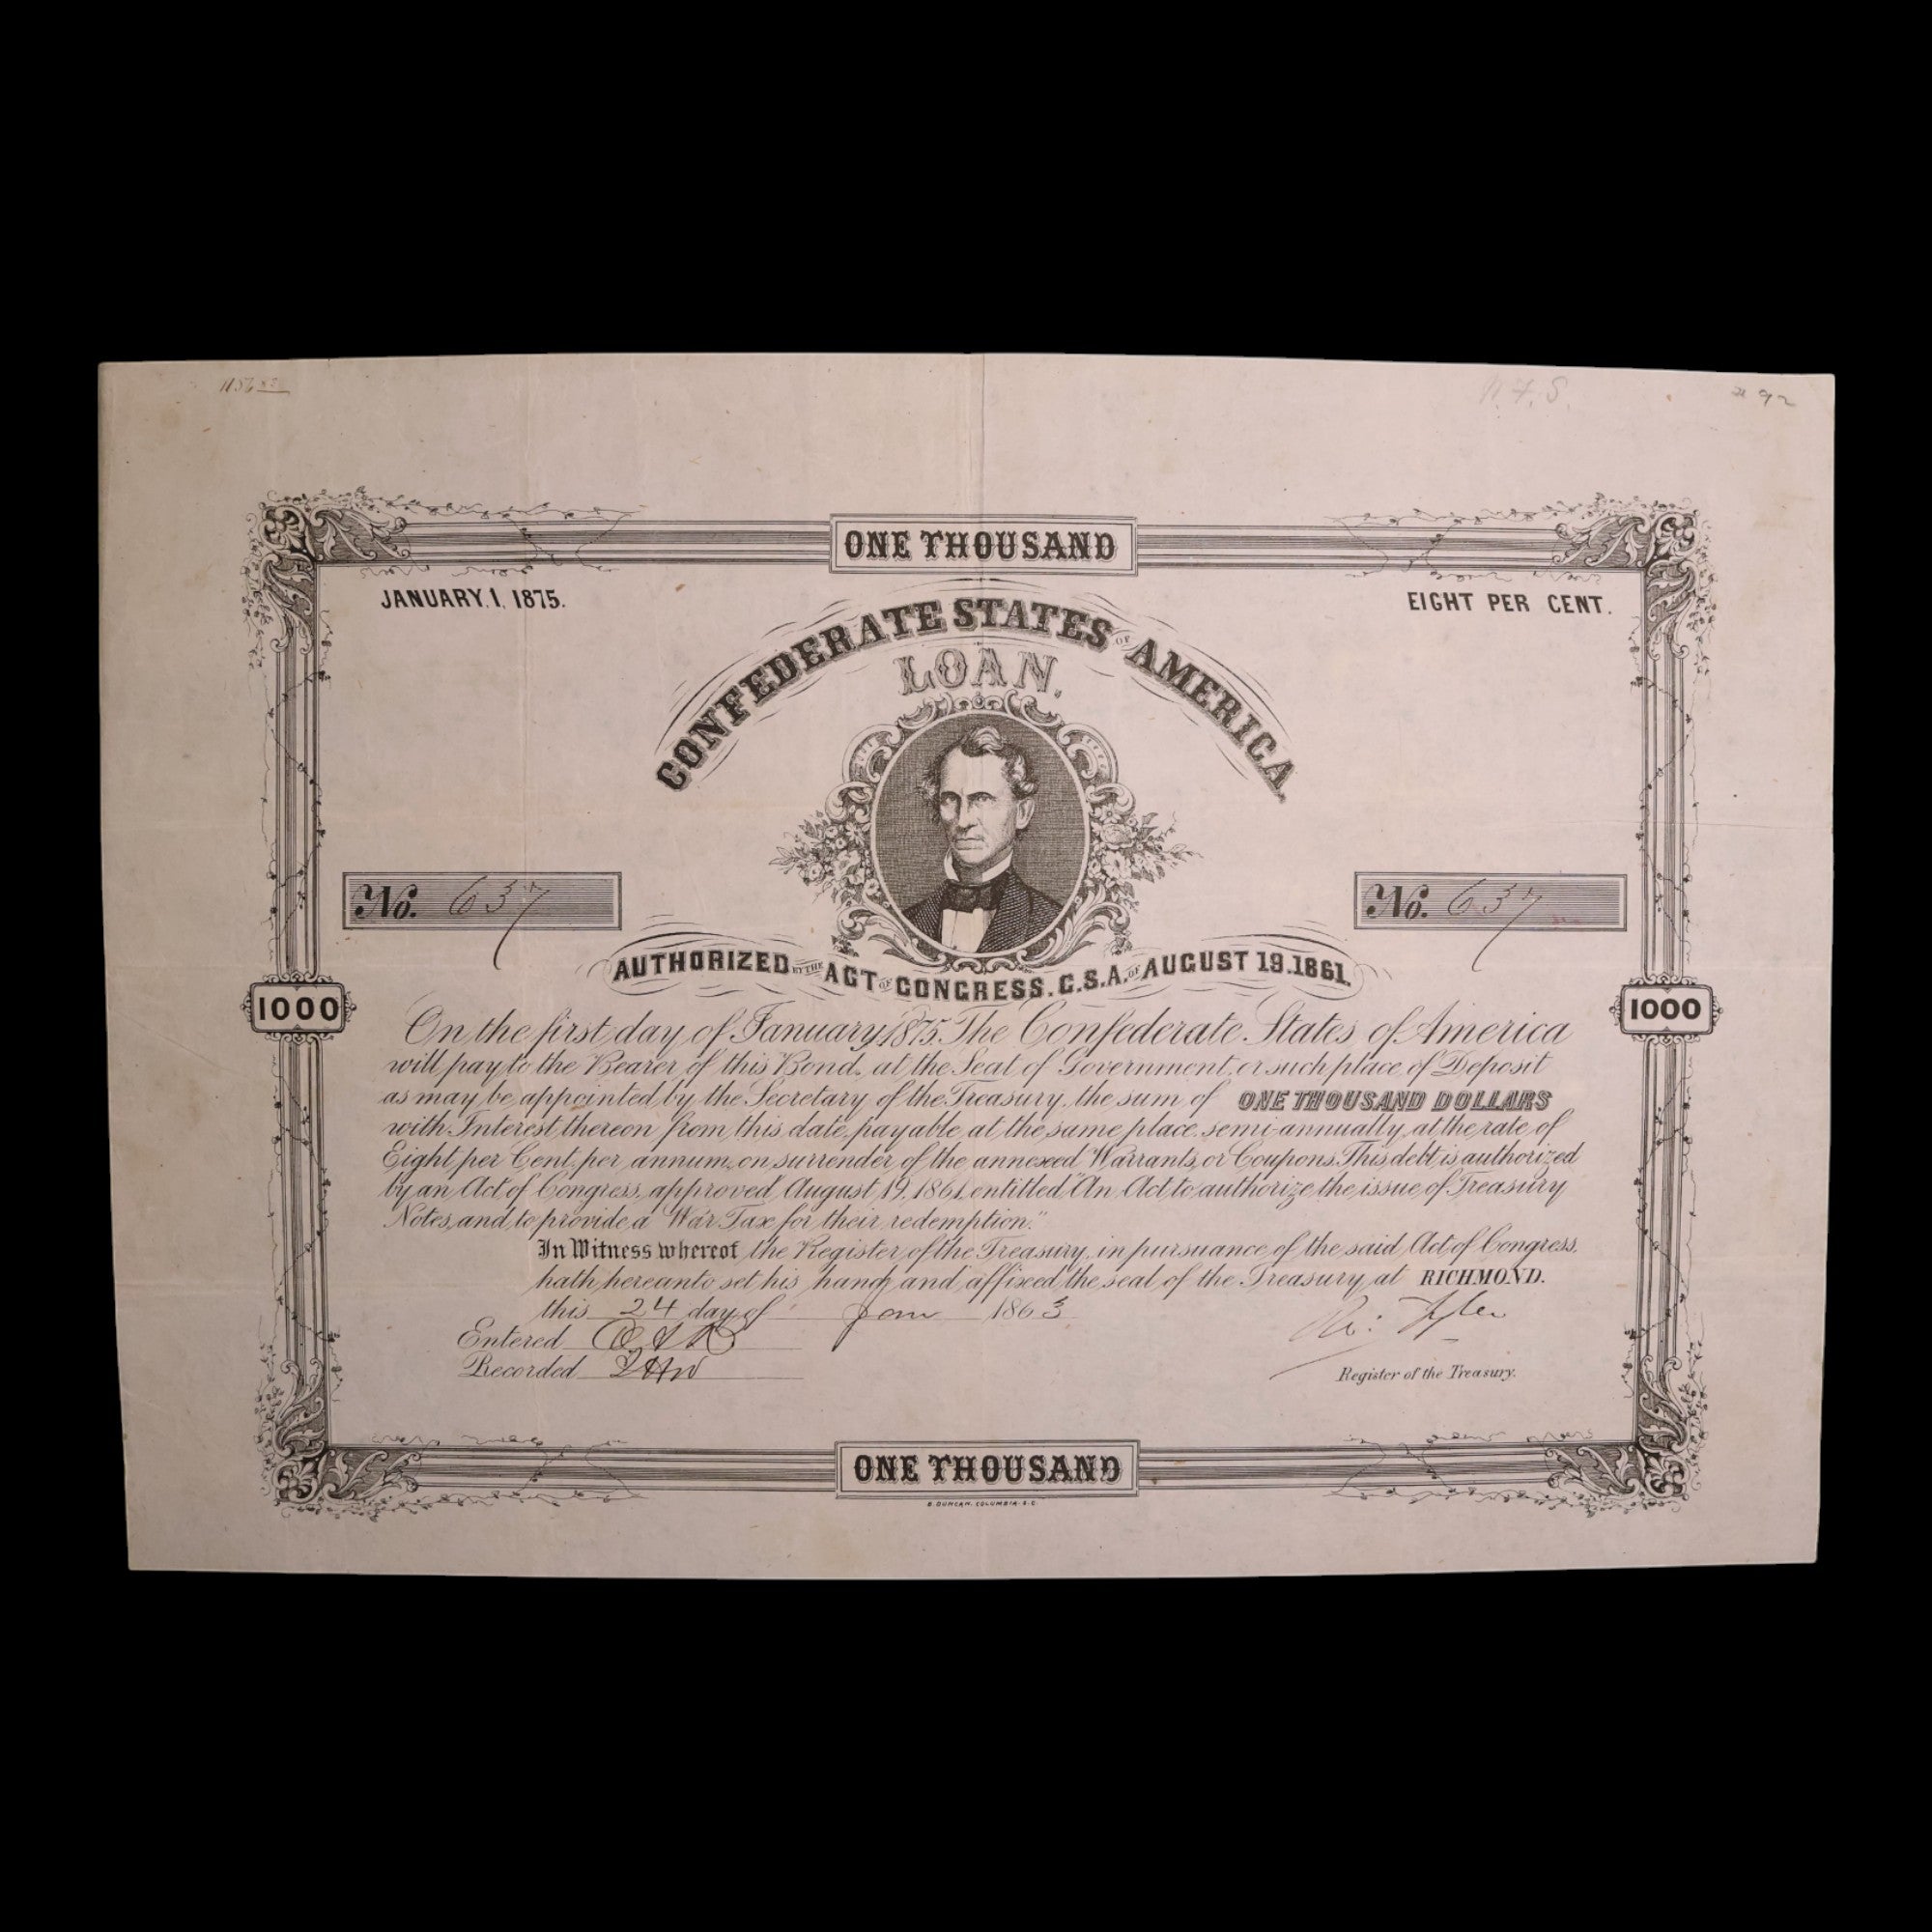 N. F. S.
92
ONE THOUSAND
JANUARY. 1, 1875.
EIGHT PER CENT.
CONFEDERATE STATES OF AMERICA
LOAN.
No. 637
No. 637
AUTHORIZED BY THE ACT OF CONGRESS. C.S.A. OF AUGUST 19.1861.
1000
1000
On the first day of January 1875. The Confederate States of America
will pay to the Bearer of this Bond, at the Seat of Government, or such place of Deposit
as may be appointed by the Secretary of the Treasury, the sum of ONE THOUSAND DOLLARS
with Interest thereon from this date, payable at the same place, semi-annually, at the rate of
Eight per Cent. per annum, on surrender of the annexed Warrants, or Coupons. This debt is authorized
by an Act of Congress, approved August 19, 1861, entitled "An Act to authorize the issue of Treasury
Notes, and to provide a War Tax for their redemption."
In Witness whereof the Register of the Treasury, in pursuance of the said Act of Congress,
hath hereunto set his hand and affixed the seal of the Treasury, at RICHMOND.
this 24 day of Jany 1863
Entered
Ro: Tyler
Recorded
Register of the Treasury.
ONE THOUSAND
B. DUNCAN. COLUMBIA. S.C.